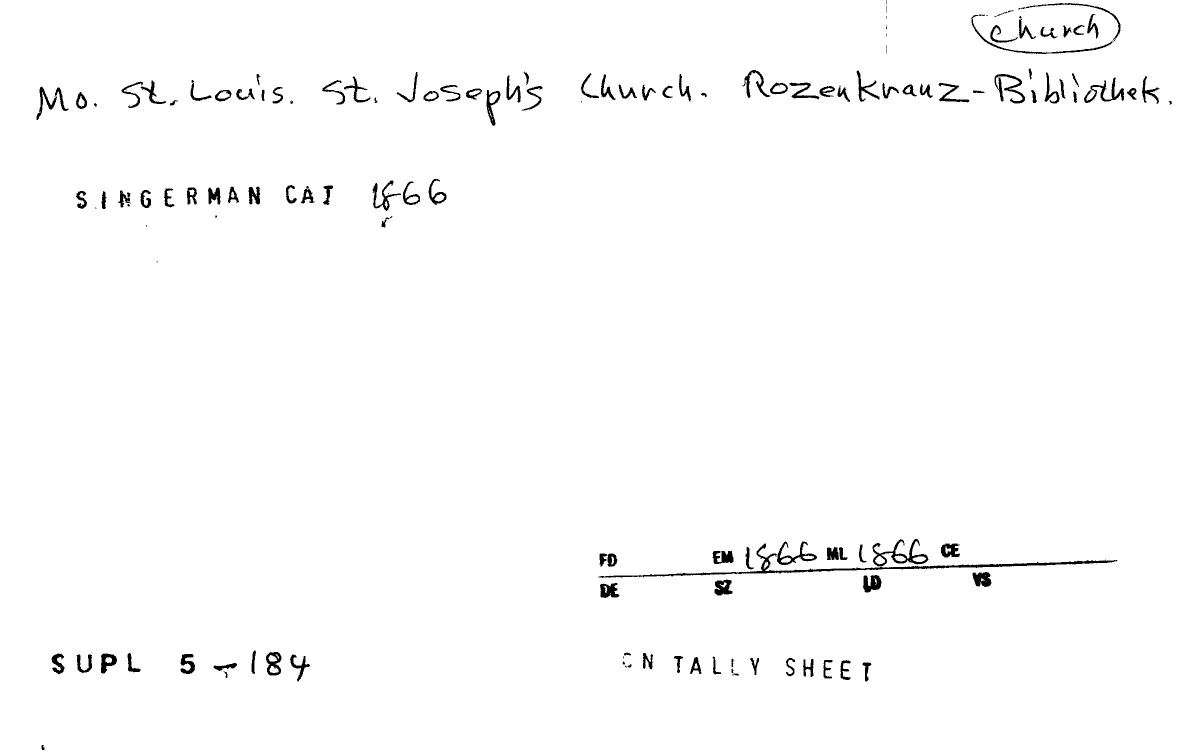 church
Mo. St. Louis. St. Joseph's Church. Rozenkranz-Bibliothek.
SINGERMAN CAT 1866
FD EM 1866 ML 1866 CE
DE SZ LD VS
SUPL 5-184
ON TALLY SHEET